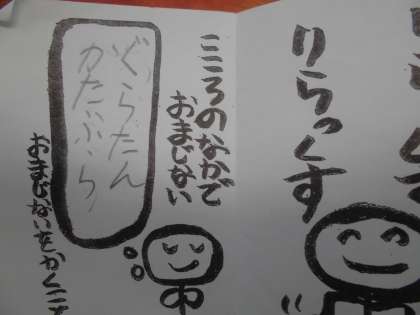 りらっくす
こころのなかで
おまじない
ぐらたん
かたぶら
おまじないをかくこ